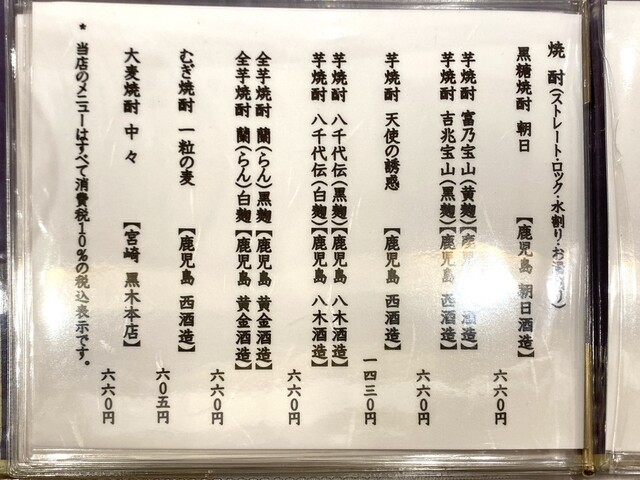 焼酎(ストレート・ロック・水割り・お湯割り)
黒糖焼酎 朝日 【鹿児島 朝日酒造】 六六〇円
芋焼酎 富乃宝山(黄麹)【鹿児島 西酒造】
芋焼酎 吉兆宝山(黒麹)【鹿児島 西酒造】 六六〇円
芋焼酎 天使の誘惑 【鹿児島 西酒造】 一四三〇円
芋焼酎 八千代伝(黒麹)【鹿児島 八木酒造】
芋焼酎 八千代伝(白麹)【鹿児島 八木酒造】 六六〇円
全芋焼酎 蘭(らん)黒麹【鹿児島 黄金酒造】
全芋焼酎 蘭(らん)白麹【鹿児島 黄金酒造】 六六〇円
むぎ焼酎 一粒の麦 【鹿児島 西酒造】 六〇五円
大麦焼酎 中々 【宮崎 黒木本店】 六六〇円
* 当店のメニューはすべて消費税10%の税込表示です。